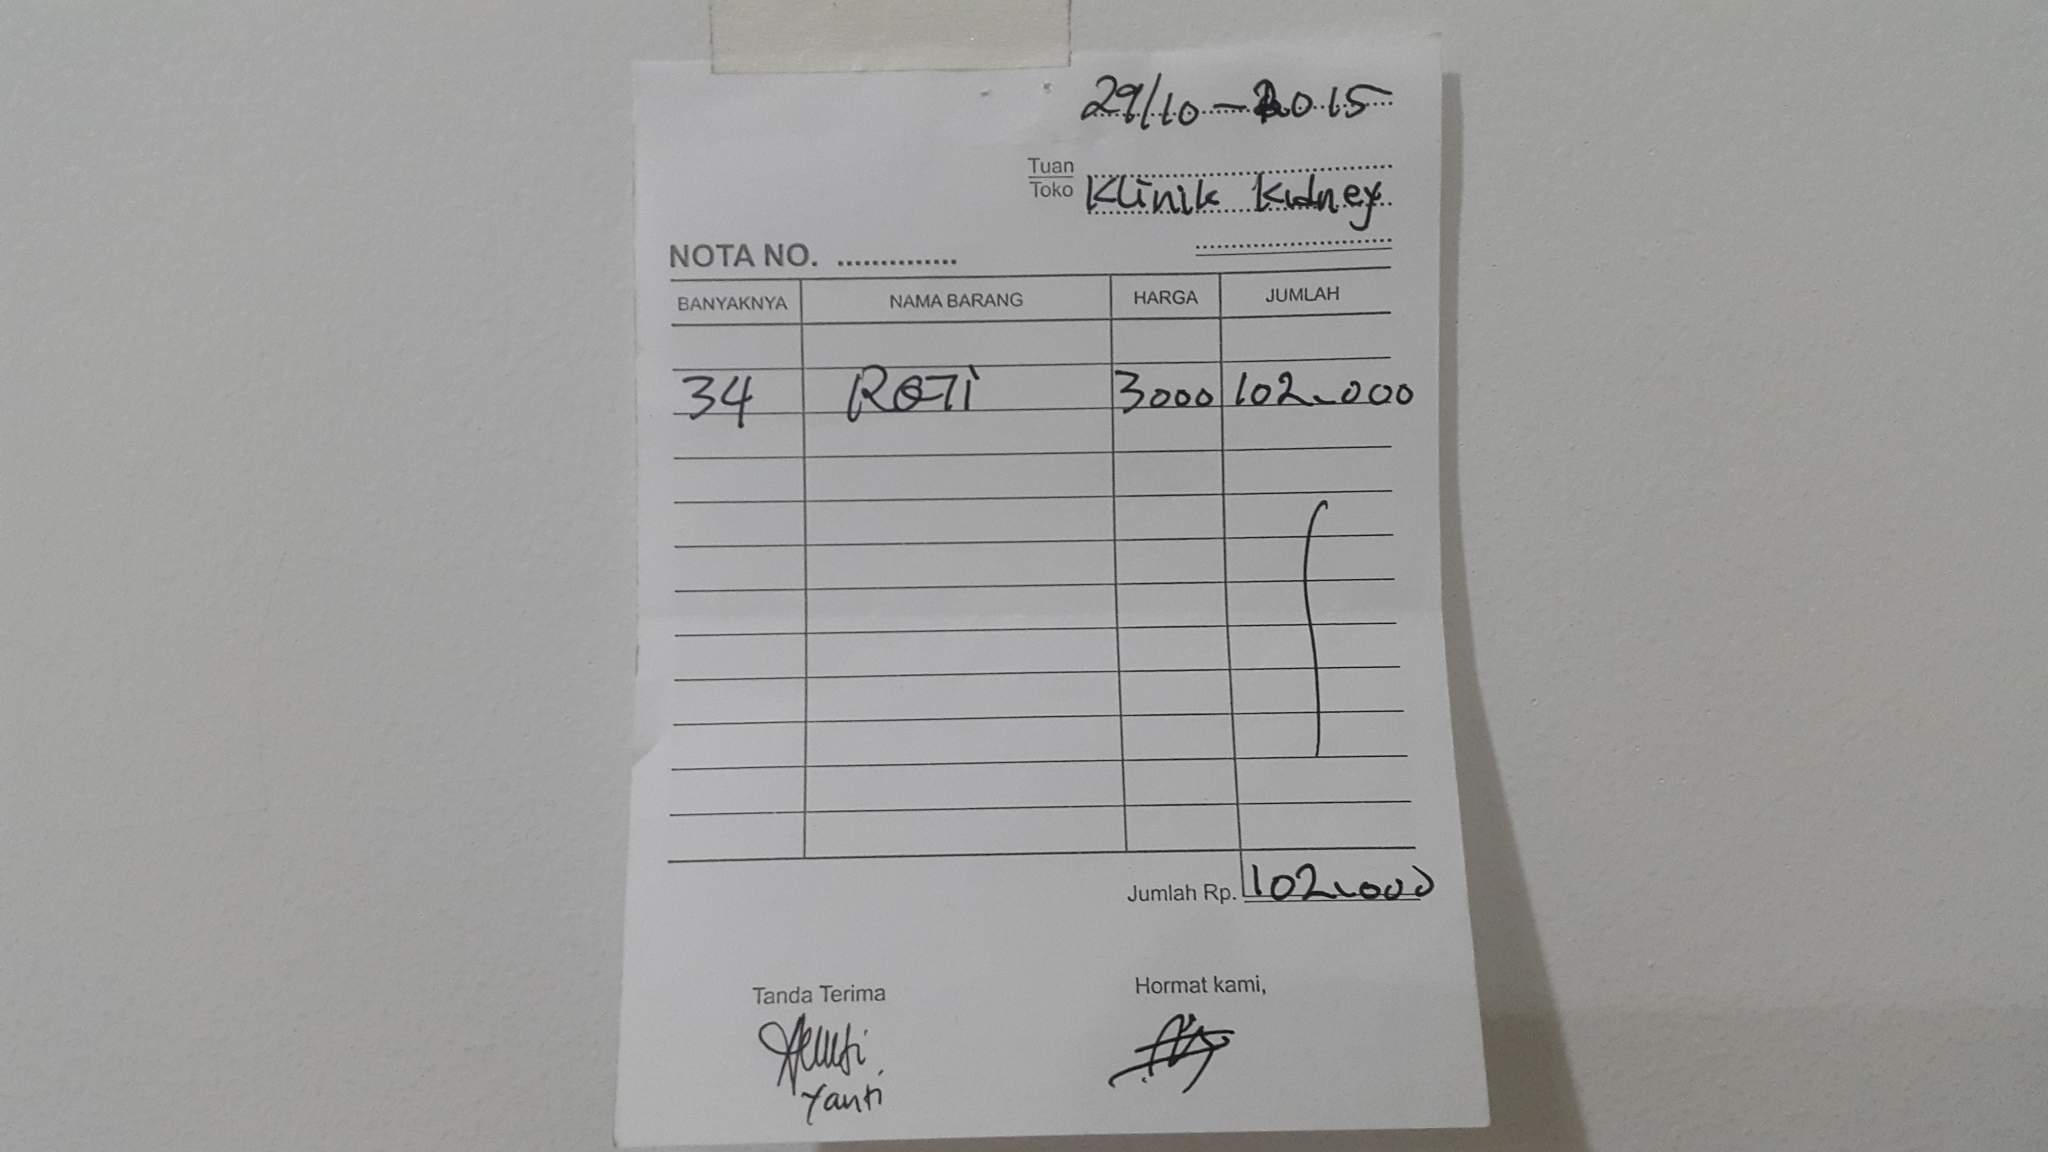 29/10-2015
Tuan
Toko Klinik Kidney
NOTA NO. ..............
BANYAKNYA NAMA BARANG HARGA JUMLAH
34 ROTI 3000 102.000
Jumlah Rp. 102.000
Tanda Terima Hormat kami,
Yanti